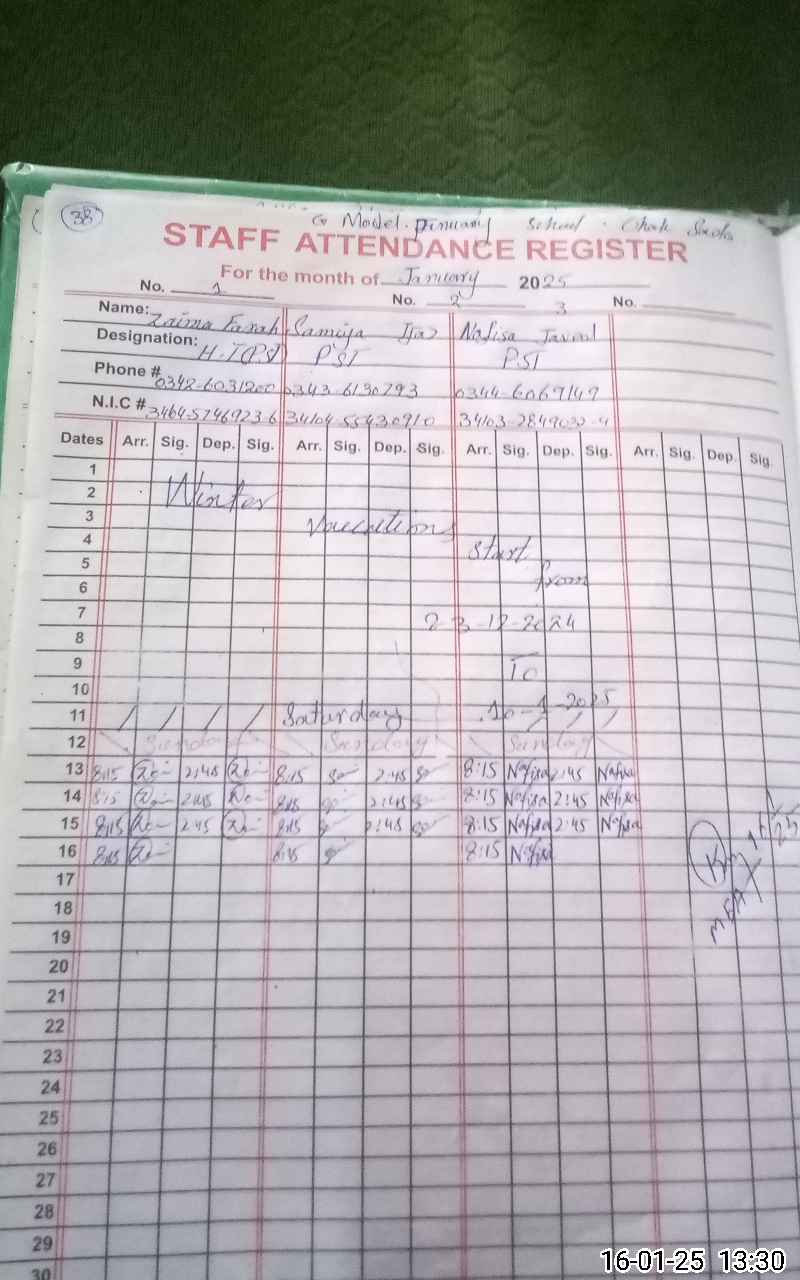 38
G Model. Primary School. Chak
STAFF ATTENDANCE REGISTER
For the month of January 2025
No. 1 No. 2 3 No.
Name: Zaima Farah Samiya Ijaz Nafisa Javed
Designation: H.T(PST) PST PST
Phone # 0342-6031200 0343-6130793 0344-6069149
N.I.C # 34104-5543091 0 34103-2849032-4
Dates Arr. Sig. Dep. Sig. Arr. Sig. Dep. Sig. Arr. Sig. Dep. Sig. Arr. Sig. Dep. Sig.
1
2 Winter
3 Vaccations
4 Start
5 from
6
7 23-12-2024
8
9 To
10 10-1-2025
11 Saturday
12 Sunday Sunday Sunday
13 8:15 2:45 8:15 2:45 8:15 Nafisa 2:45 Nafisa
14 8:15 2:45 8:15 2:45 8:15 Nafisa 2:45 Nafisa
15 8:15 2:45 8:15 2:45 8:15 Nafisa 2:45 Nafisa
16 8:15 8:15 8:15 Nafisa
MEA
17
18
19
20
21
22
23
24
25
26
27
28
29
30
16-01-25 13:30